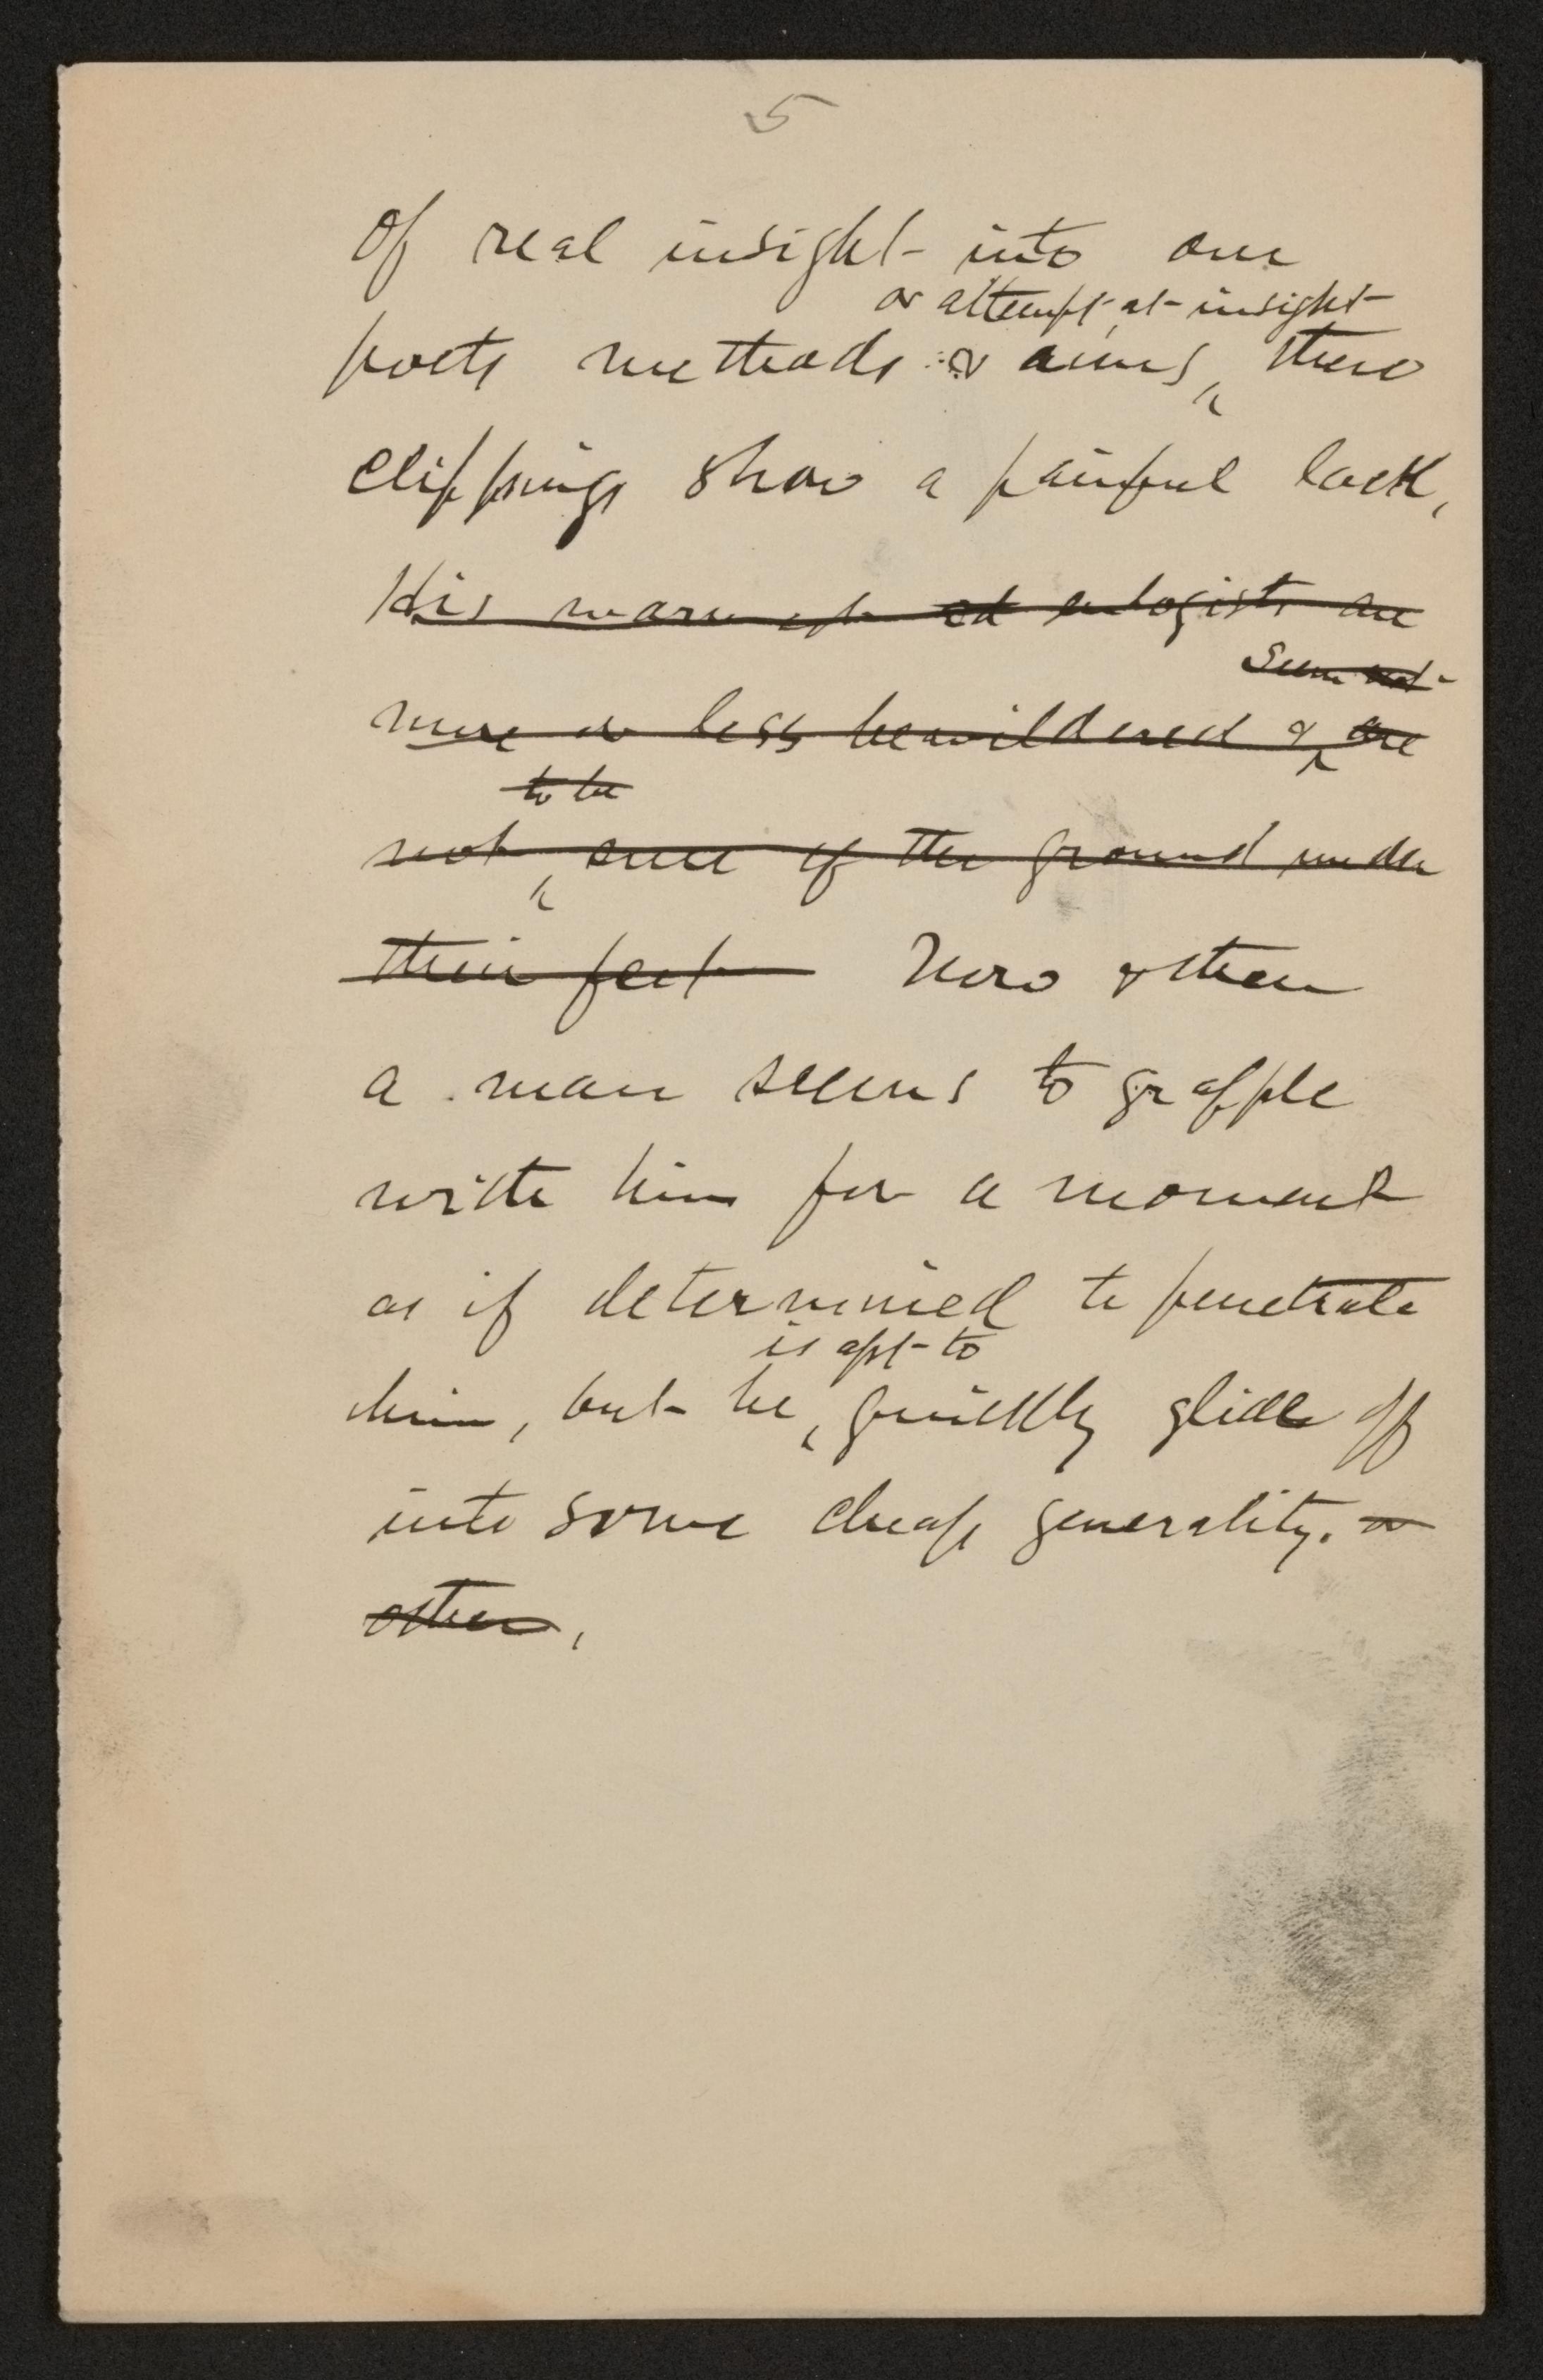 5
Of real insight into our
or attempt at insight
poets methods or aims, these
clippings show a painful lack,
His warmest eulogists are
seem not
more or less bewildered & are
to be
not sure of the ground under
their feet Now & then
a man seems to grapple
with him for a moment
as if determined to penetrate
is apt to
him, but he quickly glide off
into some cheap generality. or
other.